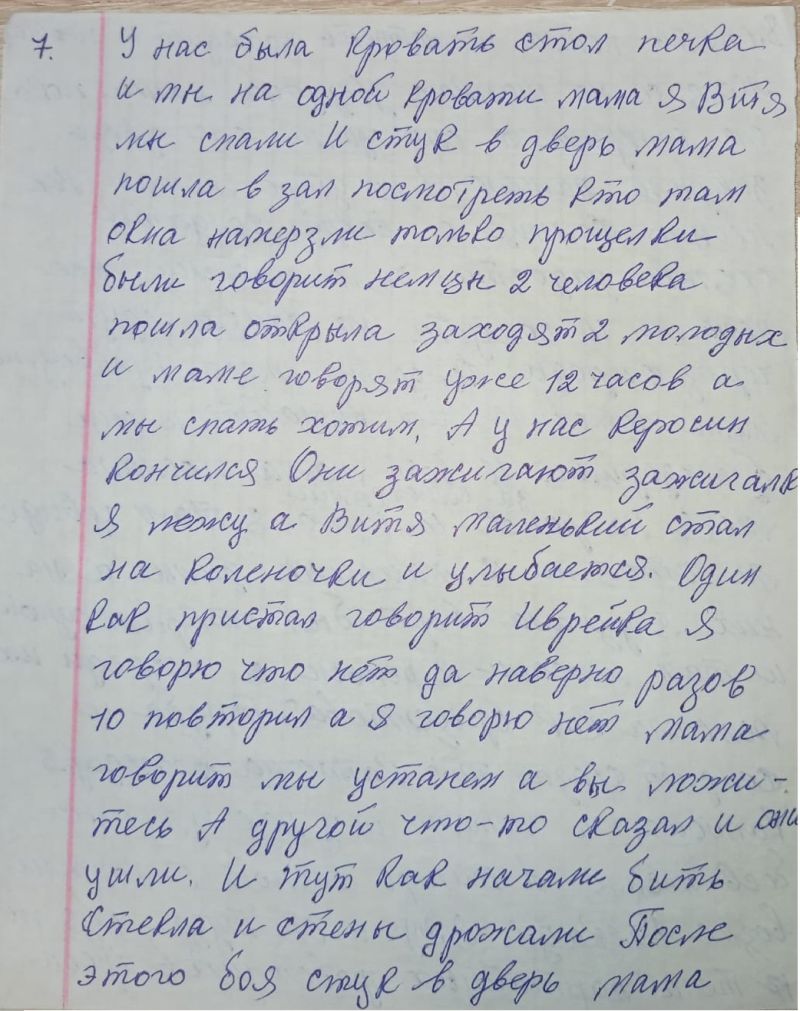 7. У нас была кровать стол печка
и мы на одной кровати мама я Витя
мы спали И стук в дверь мама
пошла в зал посмотреть кто там
окна намерзли только прощелки
были говорит немцы 2 человека
пошла открыла заходят 2 молодых
и маме говорят уже 12 часов а
мы спать хотим. А у нас керосин
кончился Они зажигают зажигалк
я лежу а Витя маленький стал
на коленочки и улыбается. Один
как пристал говорит Иврейка Я
говорю что нет да наверно разов
10 повторил а Я говорю нет мама
говорит мы устанем а вы ложи-
тесь А другой что-то сказал и они
ушли. И тут как начали бить
Стекла и стены дрожали После
этого боя стук в дверь мама